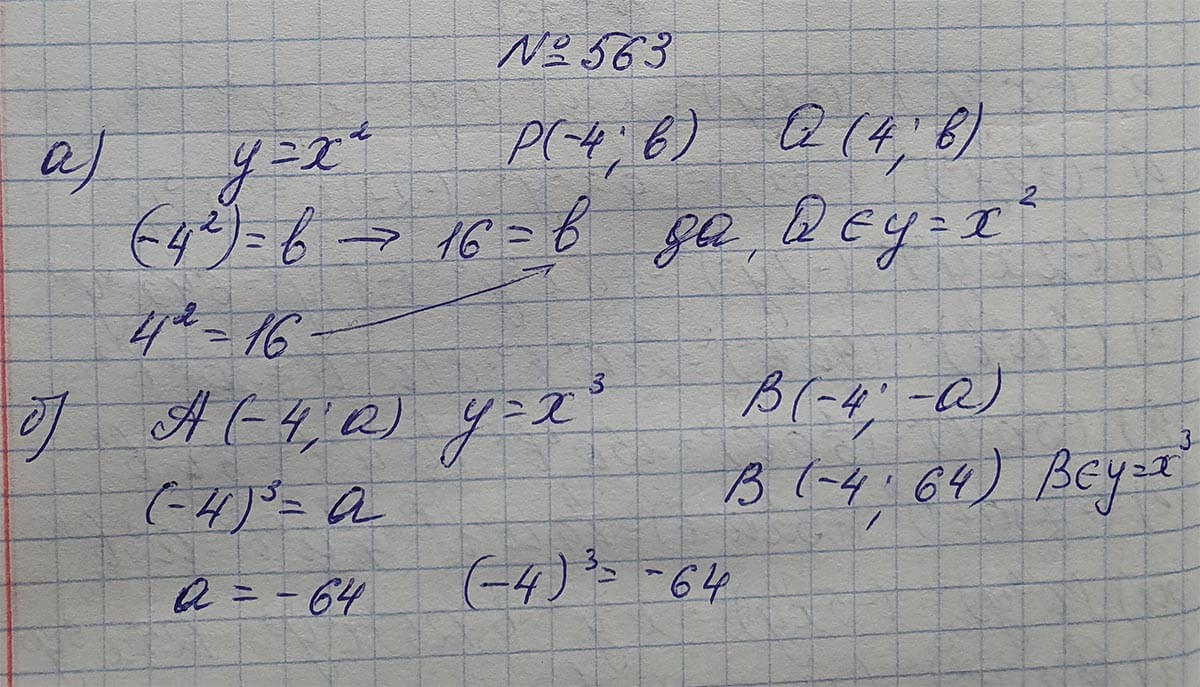 № 563
а) y = x² P(-4; в) Q (4; в)
(-4²) = в → 16 = в да, Q ∈ y = x²
4² = 16
б) A (-4; a) y = x³ B (-4; -a)
(-4)³ = a B (-4; 64) B ∈ y = x³
a = -64 (-4)³ = -64